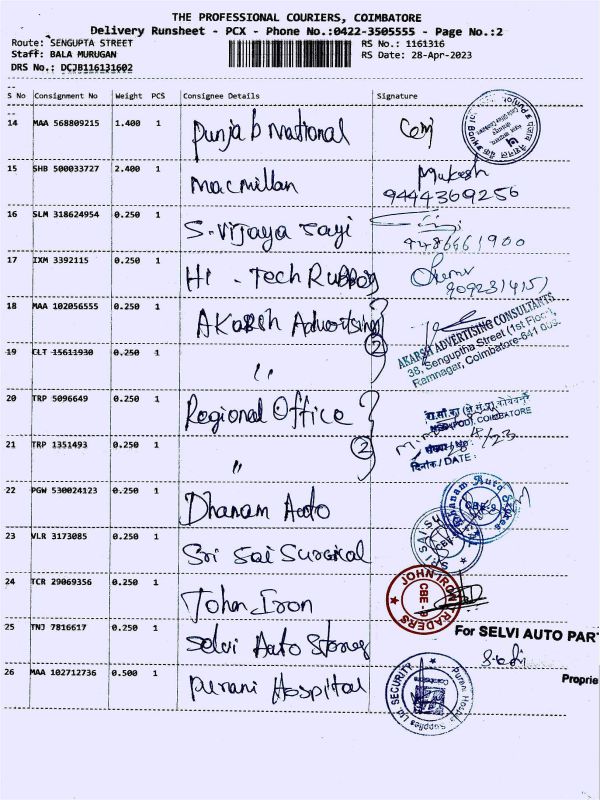 THE PROFESSIONAL COURIERS, COIMBATORE
Delivery Runsheet - PCX - Phone No.:0422-3505555 - Page No.:2
Route: SENGUPTA STREET RS No.: 1161316
Staff: BALA MURUGAN RS Date: 28-Apr-2023
DRS No.: DCJB116131602
S No Consignment No Weight PCS Consignee Details Signature
14 MAA 568809215 1.400 1 Punjab National
15 SHB 500033727 2.400 1 Macmillan Mukesh
9444369256
16 SLM 318624954 0.250 1 S.Vijaya Jayi
17 IXM 3392115 0.250 1 Hi - Tech Rubbers
18 MAA 102056555 0.250 1 AKarsh Advertising
AKARSH ADVERTISING CONSULTANTS
38, Senguptha Street (1st Floor),
Ramnagar, Coimbatore-641 009.
2
19 CLT 15611930 0.250 1 "
20 TRP 5096649 0.250 1 Regional Office
COIMBATORE
21 TRP 1351493 0.250 1 " 2
दिनांक / DATE :
22 PGW 530024123 0.250 1 Dhanam Auto
Dhanam Auto Stores
CBE-9
23 VLR 3173085 0.250 1 Sri Sai Surgical
24 TCR 29069356 0.250 1 John Iron
JOHN IRON TRADERS
CBE - 9
25 TNJ 7816617 0.250 1 Selvi Auto Stores
For SELVI AUTO PAR
Proprie
26 MAA 102712736 0.500 1 Purani Hospital
SECURITY